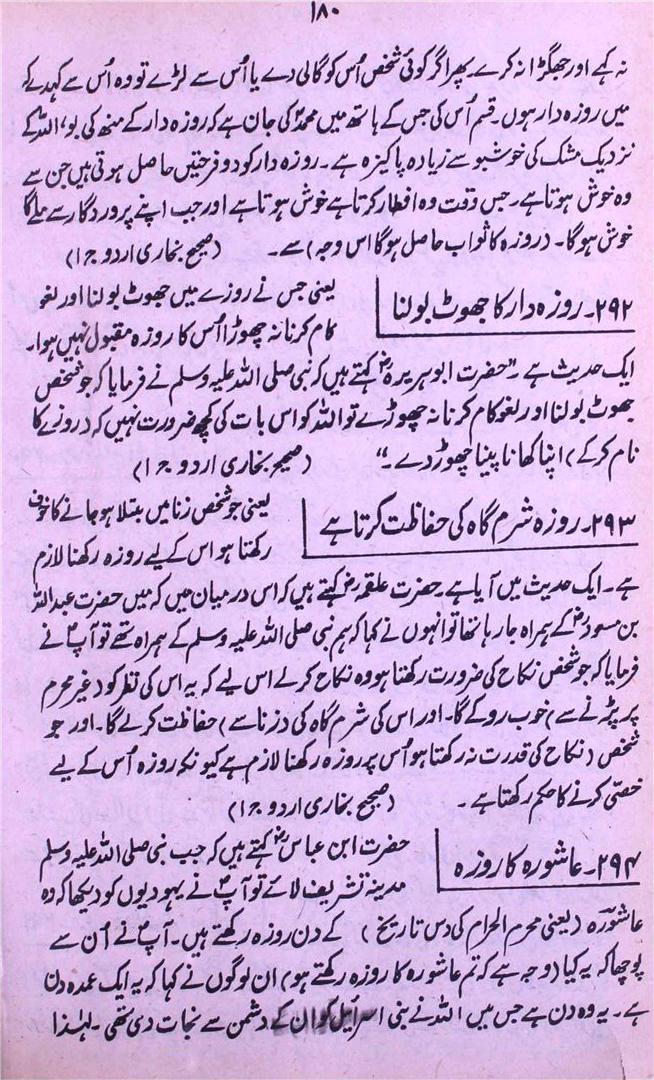 ۱۸۰
نہ کہے اور جھگڑا نہ کرے۔ پھر اگر کوئی شخص اُس کو گالی دے یا اُس سے لڑے تو وہ اُس سے کہدے کہ
میں روزہ دار ہوں۔ قسم اُس کی جس کے ہاتھ میں محمدؐ کی جان ہے کہ روزہ دار کے منھ کی بو، اللہ کے
نزدیک مشک کی خوشبو سے زیادہ پاکیزہ ہے۔ روزہ دار کو دو فرحتیں حاصل ہوتی ہیں جن سے
وہ خوش ہوتا ہے۔ جس وقت وہ افطار کرتا ہے خوش ہوتا ہے اور جب اپنے پروردگار سے ملے گا
خوش ہو گا۔ (روزہ کا ثواب حاصل ہو گا اس وجہ) سے۔ (صحیح بخاری اردو ج ۱)
۲۹۲۔ روزہ دار کا جھوٹ بولنا
یعنی جس نے روزے میں جھوٹ بولنا اور لغو
کام کرنا نہ چھوڑا اُس کا روزہ مقبول نہیں ہوا۔
ایک حدیث ہے۔ "حضرت ابوہریرہؓ کہتے ہیں کہ نبی صلی اللہ علیہ وسلم نے فرمایا کہ جو شخص
جھوٹ بولنا اور لغو کام کرنا نہ چھوڑے تو اللہ کو اس بات کی کچھ ضرورت نہیں کہ (روزے کا
نام کر کے) اپنا کھانا پینا چھوڑ دے۔" (صحیح بخاری اردو ج ۱)
۲۹۳۔ روزہ شرم گاہ کی حفاظت کرتا ہے
یعنی جو شخص زنا میں مبتلا ہو جانے کا خوف
رکھتا ہو اس کے لیے روزہ رکھنا لازم
ہے۔ ایک حدیث میں آیا ہے۔ حضرت علقمہؓ کہتے ہیں کہ اس درمیان میں کہ میں حضرت عبداللہ
بن مسعودؓ کے ہمراہ جا رہا تھا تو انہوں نے کہا کہ ہم نبی صلی اللہ علیہ وسلم کے ہمراہ تھے تو آپؐ نے
فرمایا کہ جو شخص نکاح کی ضرورت رکھتا ہو وہ نکاح کرلے اس لیے کہ یہ اس کی نظر کو (غیر محرم
پر پڑنے سے) خوب روکے گا۔ اور اس کی شرم گاہ کی (زنا سے) حفاظت کرلے گا۔ اور جو
شخص (نکاح کی قدرت نہ رکھتا ہو اُس پر روزہ رکھنا لازم ہے کیونکہ روزہ اُس کے لیے
خصّی کرنے کا حکم رکھتا ہے۔ (صحیح بخاری اردو ج ۱)
۲۹۴۔ عاشورہ کا روزہ
حضرت ابن عباسؓ کہتے ہیں کہ جب نبی صلی اللہ علیہ وسلم
مدینہ تشریف لائے تو آپؐ نے یہودیوں کو دیکھا کہ وہ
عاشورہ (یعنی محرم الحرام کی دس تاریخ) کے دن روزہ رکھتے ہیں۔ آپؐ نے اُن سے
پوچھا کہ یہ کیا (وجہ ہے کہ تم عاشورہ کا روزہ رکھتے ہو) ان لوگوں نے کہا کہ یہ ایک عمدہ دن
ہے۔ یہ وہ دن ہے جس میں اللہ نے بنی اسرائیل کو ان کے دشمن سے نجات دی تھی۔ لہٰذا